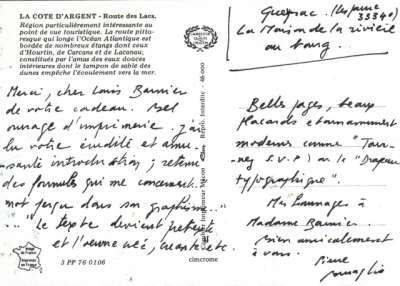 LA COTE D'ARGENT - Route des Lacs.
Région particulièrement intéressante au
point de vue touristique. La route pitto-
resque qui longe l'Océan Atlantique est
bordée de nombreux étangs dont ceux
d'Hourtin, de Carcans et de Lacanau;
constitués par l'amas des eaux douces
intérieures dont le tampon de sable des
dunes empêche l'écoulement vers la mer.
Merci, cher Louis Barnier
de votre cadeau. Bel
ouvrage d'imprimerie. j'ai
lu votre érudite et amu-
sante introduction; retenu
des formules qui me concernent.
mot perçu dans son graphisme...
..." Le texte devient prétexte
et l'œuvre créé, créante etc.
3 PP 76 0106
cimcrome
Imprimeur Mâcon
Repro. Interdite - 46-000
La Maison de la rivière
au bourg
Belles pages, beaux
placards étonnamment
modernes comme "Tour-
nez S.V.P) ou le "Drapeau
typographique".
Mes hommages à
Madame Barnier.
bien amicalement
à vous.
Pierre